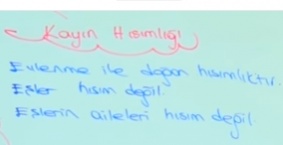 Kayın Hısımlığı
Evlenme ile doğan hısımlıktır.
Eşler hısım değil.
Eşlerin aileleri hısım değil.